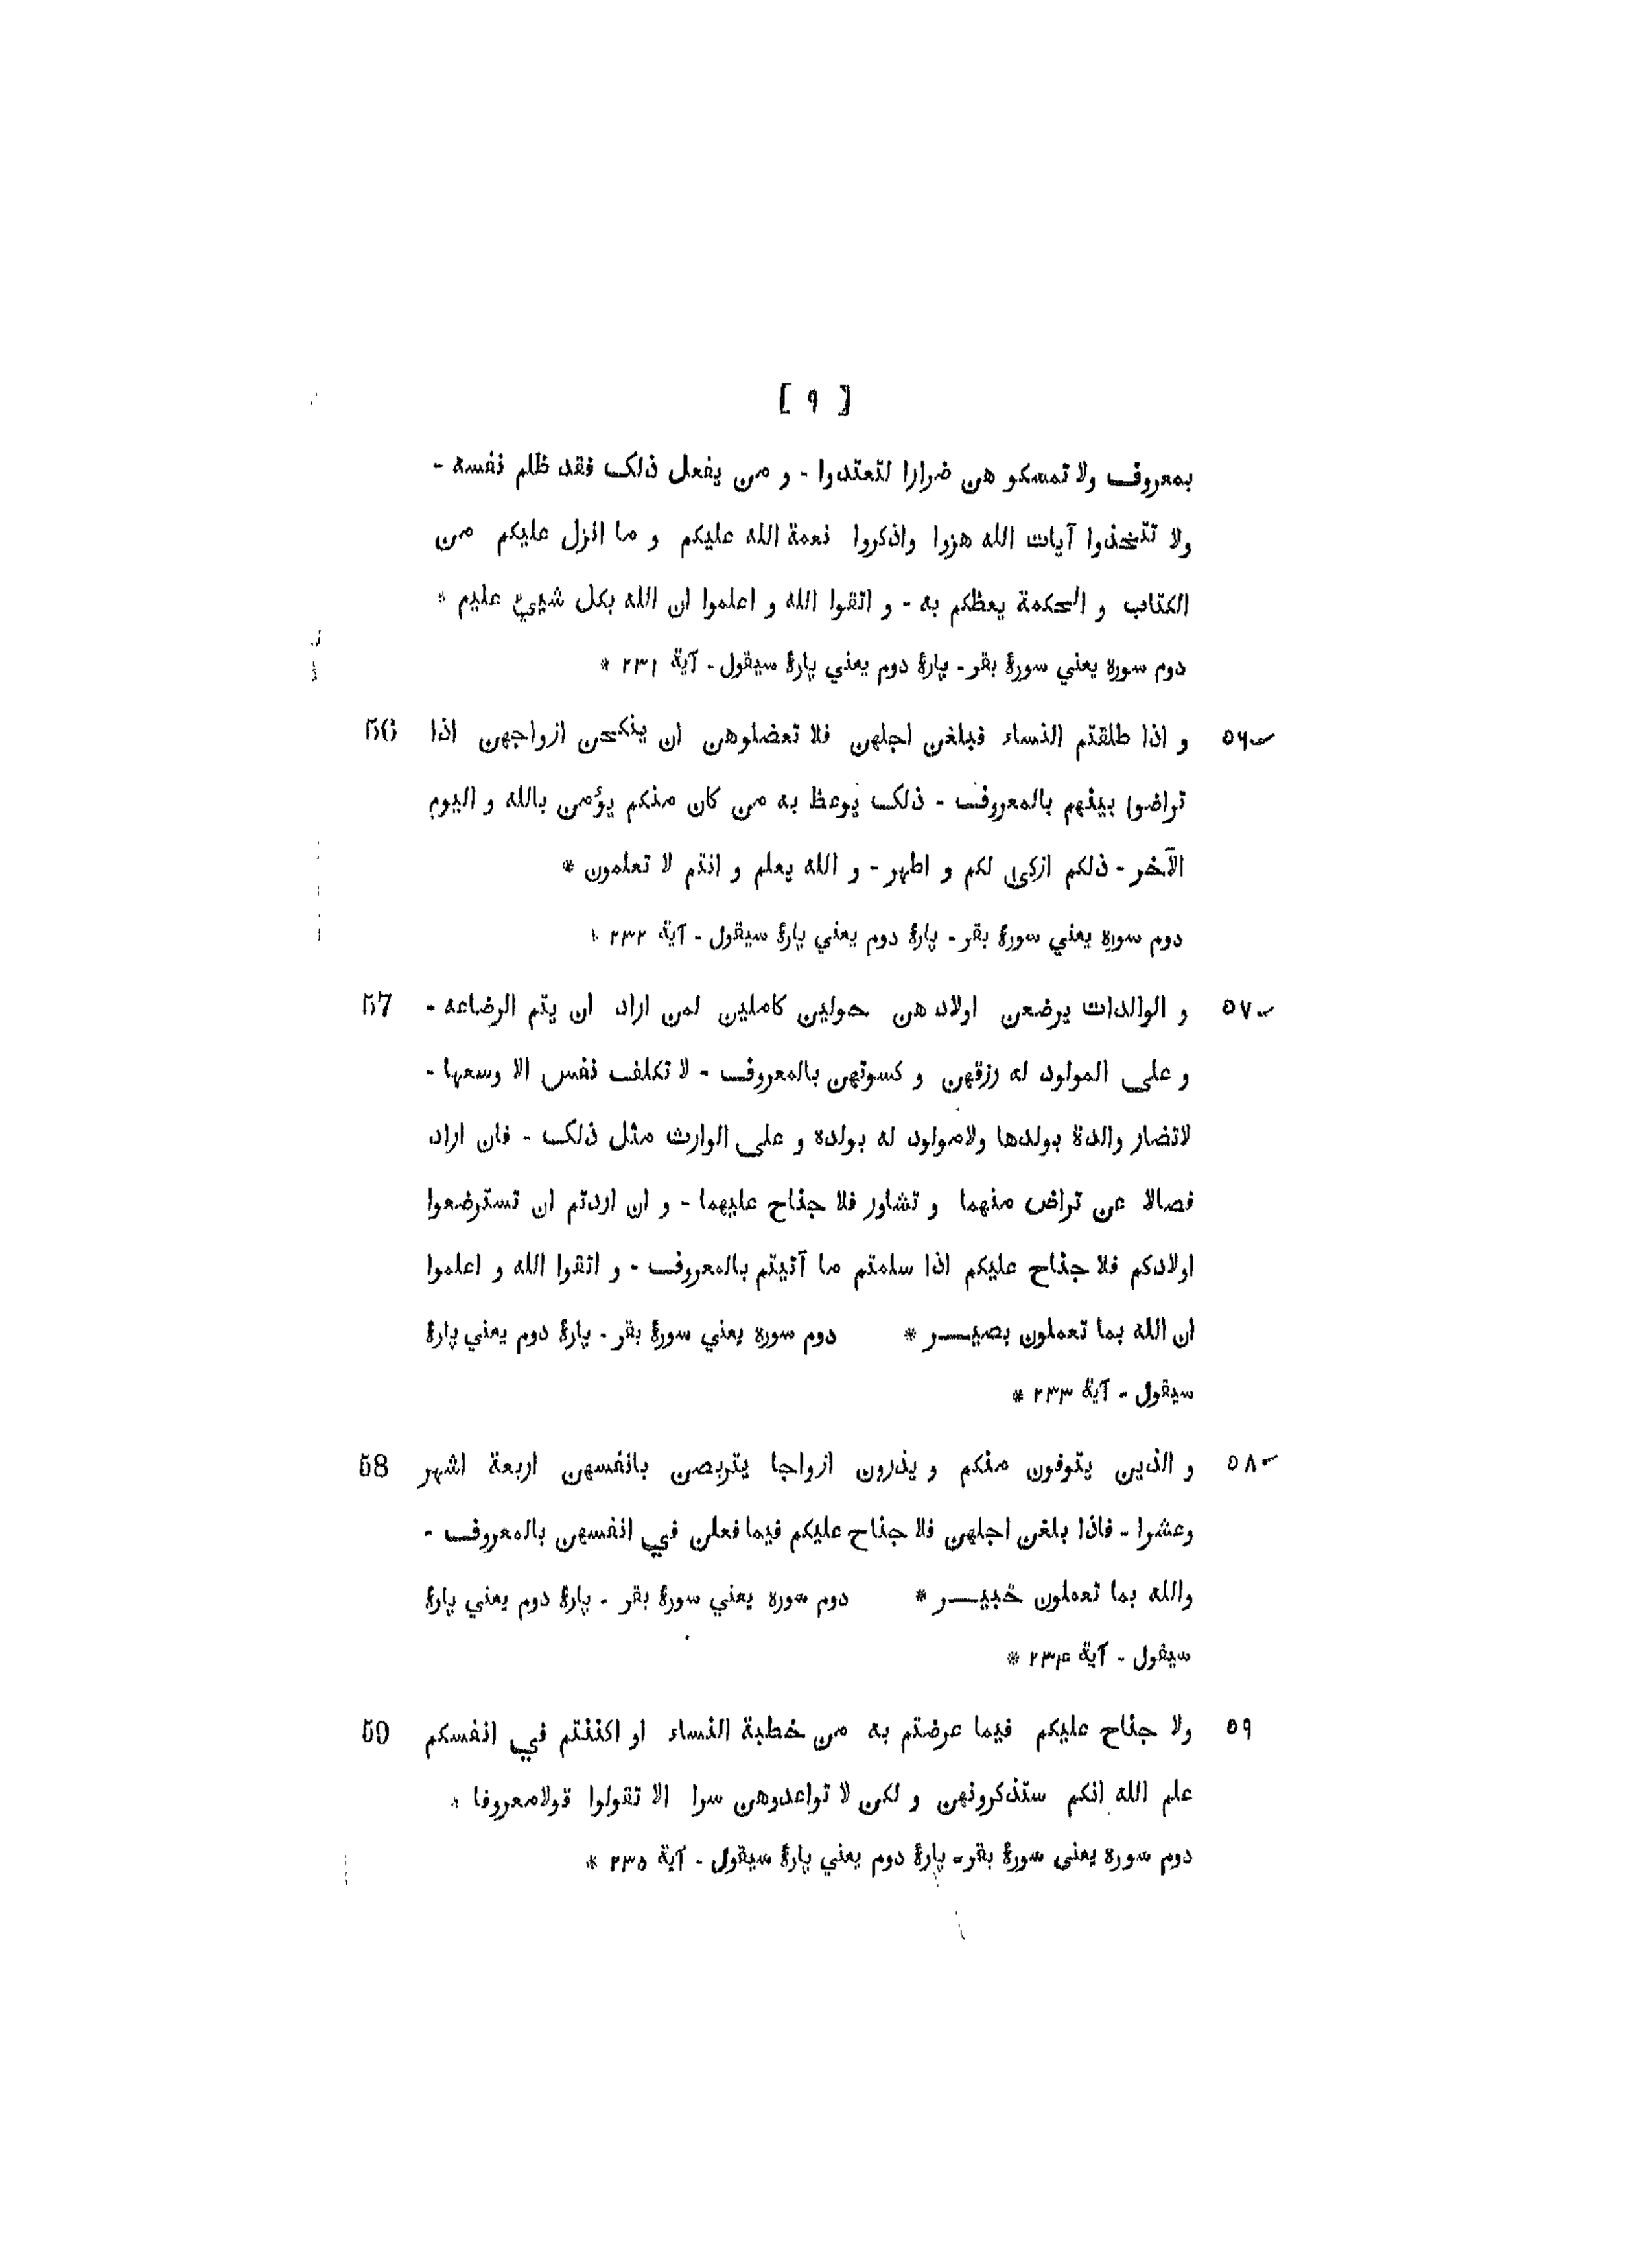 [ ٩ ]
بمعروف ولا تمسكو هن ضرارا لتعتدوا - و من يفعل ذلك فقد ظلم نفسه -
ولا تتخذوا آيات الله هزوا واذكروا نعمة الله عليكم و ما انزل عليكم من
الكتاب و الحكمة يعظكم به - و اتقوا الله و اعلموا ان الله بكل شيئ عليم *
دوم سوره يعني سورۀ بقر - پارۀ دوم يعني پارۀ سيقول - آية ٢٣١ *
٥٦ و اذا طلقتم النساء فبلغن اجلهن فلا تعضلوهن ان ينكحن ازواجهن اذا 56
تراضوا بينهم بالمعروف - ذلك يوعظ به من كان منكم يؤمن بالله و اليوم
الآخر - ذلكم ازكى لكم و اطهر - و الله يعلم و انتم لا تعلمون *
دوم سوره يعني سورۀ بقر - پارۀ دوم يعني پارۀ سيقول - آية ٢٣٢ *
٥٧ و الوالدات يرضعن اولاد هن حولين كاملين لمن اراد ان يتم الرضاعه - 57
و على المولود له رزقهن و كسوتهن بالمعروف - لا تكلف نفس الا وسعها -
لاتضار والدة بولدها ولامولود له بولده و على الوارث مثل ذلك - فان اراد
فصالا عن تراض منهما و تشاور فلا جناح عليهما - و ان اردتم ان تسترضعوا
اولادكم فلا جناح عليكم اذا سلمتم ما آتيتم بالمعروف - و اتقوا الله و اعلموا
ان الله بما تعملون بصيـــر * دوم سوره يعني سورۀ بقر - پارۀ دوم يعني پارۀ
سيقول - آية ٢٣٣ *
٥٨ و الذين يتوفون منكم و يذرون ازواجا يتربصن بانفسهن اربعة اشهر 58
وعشرا - فاذا بلغن اجلهن فلا جناح عليكم فيما فعلن في انفسهن بالمعروف -
والله بما تعملون خبيـــر * دوم سوره يعني سورۀ بقر - پارۀ دوم يعني پارۀ
سيقول - آية ٢٣۴ *
٥٩ ولا جناح عليكم فيما عرضتم به من خطبة النساء او اكننتم في انفسكم 59
علم الله انكم ستذكرونهن و لكن لا تواعدوهن سرا الا تقولوا قولامعروفا *
دوم سوره يعنى سورۀ بقر - پارۀ دوم يعني پارۀ سيقول - آية ٢٣٥ *